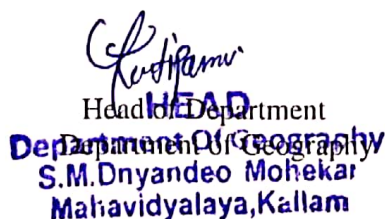 Head of Department
HEAD
Department of Geography
Department Of Geography
S.M.Dnyandeo Mohekar
Mahavidyalaya,Kallam